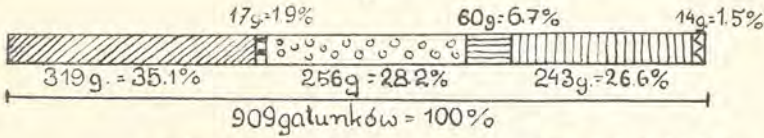 17g.=1.9% 60g=6.7% 14g.=1.5%
319g.=35.1% 256g=28.2% 243g.=26.6%
909 gatunków = 100%